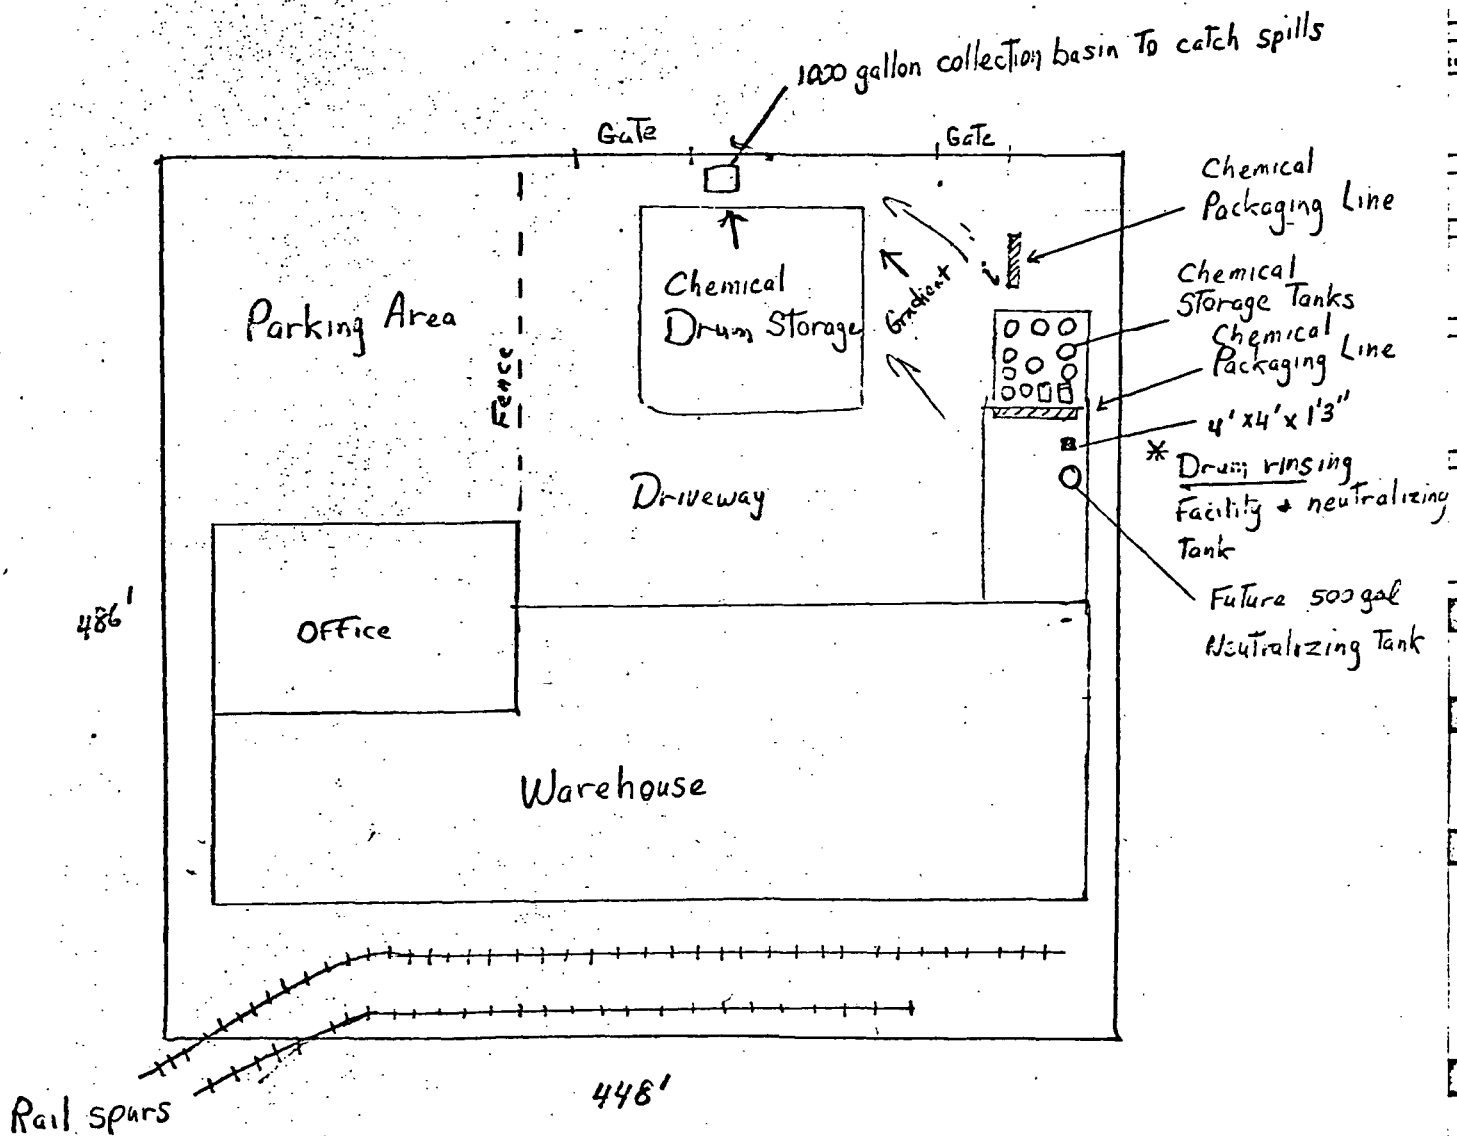 1000 gallon collection basin To catch spills
Gate
Gate
Chemical
Packaging Line
Chemical
Storage Tanks
Chemical
Packaging Line
4' x 4' x 1'3"
* Drum rinsing
Facility & neutralizing
Tank
Future 500 gal
Neutralizing Tank
Parking Area
Fence
Chemical
Drum Storage
Gradient
Driveway
Office
486'
Warehouse
448'
Rail spurs